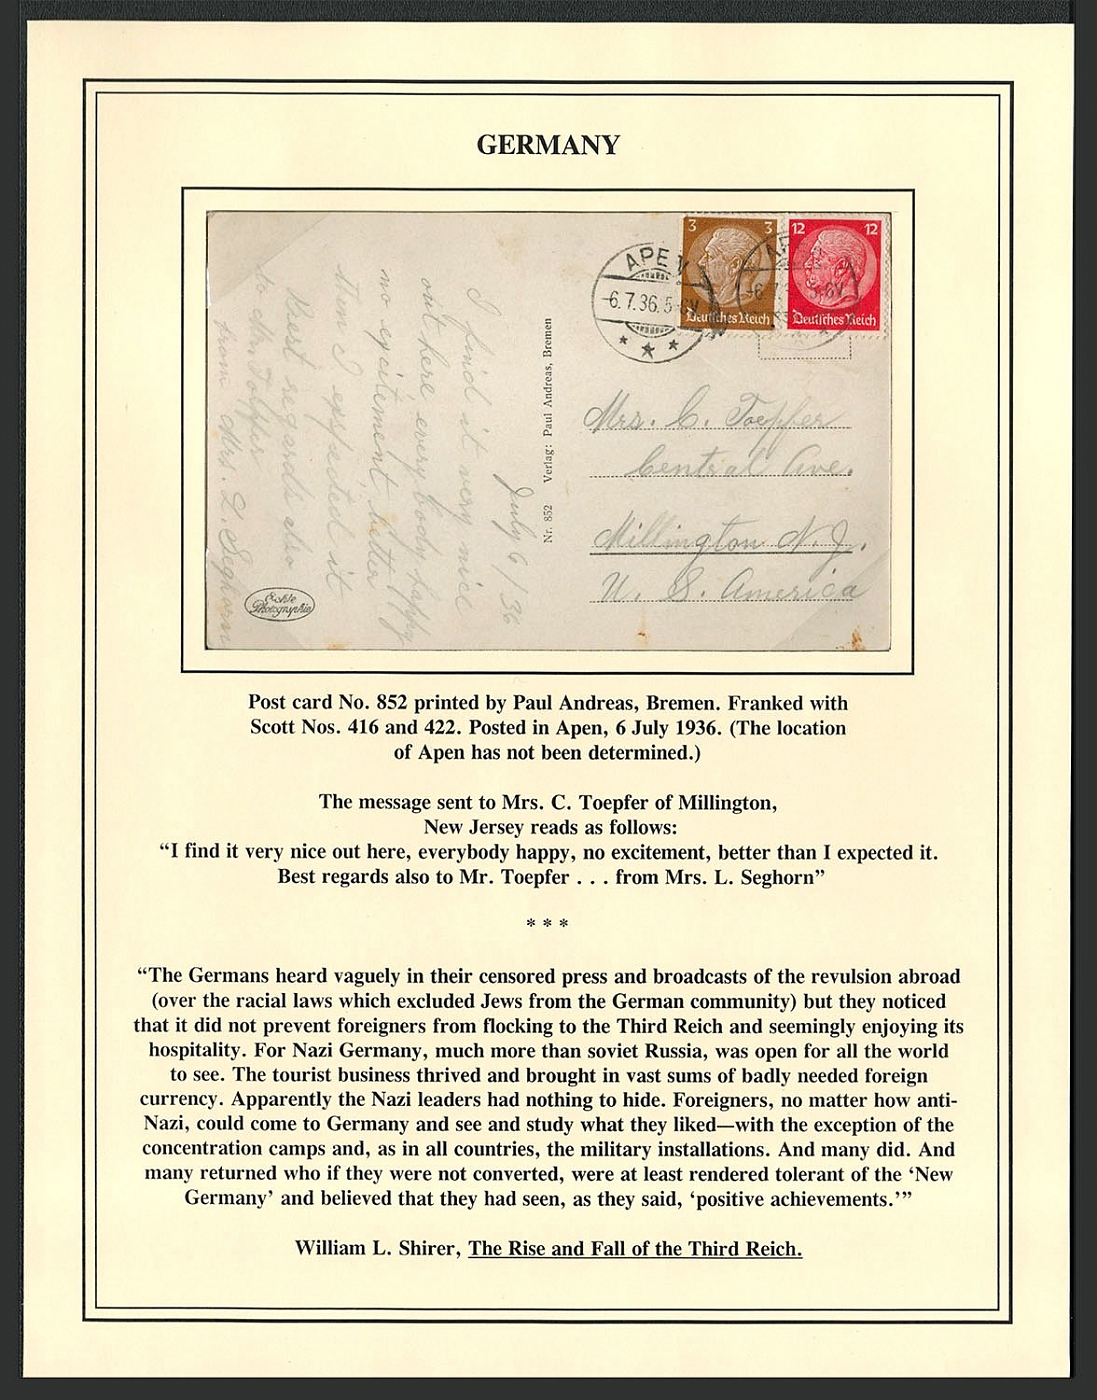 GERMANY
3 3
Deutsches Reich
12 12
Deutsches Reich
APEN
-6.7.36.5-6V
-6.7. 5-6V
July 6/36
I find it very nice
out here everybody happy
no excitement better
then I expected it
Best regards also
to Mr. Toepfer
from Mrs. L. Seghorn
Echte
Photographie
Nr. 852 Verlag: Paul Andreas, Bremen
Mrs. C. Toepfer
Central Ave.
Millington N. J.
U. S. America
Post card No. 852 printed by Paul Andreas, Bremen. Franked with
Scott Nos. 416 and 422. Posted in Apen, 6 July 1936. (The location
of Apen has not been determined.)
The message sent to Mrs. C. Toepfer of Millington,
New Jersey reads as follows:
“I find it very nice out here, everybody happy, no excitement, better than I expected it.
Best regards also to Mr. Toepfer . . . from Mrs. L. Seghorn”
* * *
“The Germans heard vaguely in their censored press and broadcasts of the revulsion abroad
(over the racial laws which excluded Jews from the German community) but they noticed
that it did not prevent foreigners from flocking to the Third Reich and seemingly enjoying its
hospitality. For Nazi Germany, much more than soviet Russia, was open for all the world
to see. The tourist business thrived and brought in vast sums of badly needed foreign
currency. Apparently the Nazi leaders had nothing to hide. Foreigners, no matter how anti-
Nazi, could come to Germany and see and study what they liked—with the exception of the
concentration camps and, as in all countries, the military installations. And many did. And
many returned who if they were not converted, were at least rendered tolerant of the ‘New
Germany’ and believed that they had seen, as they said, ‘positive achievements.’”
William L. Shirer, The Rise and Fall of the Third Reich.